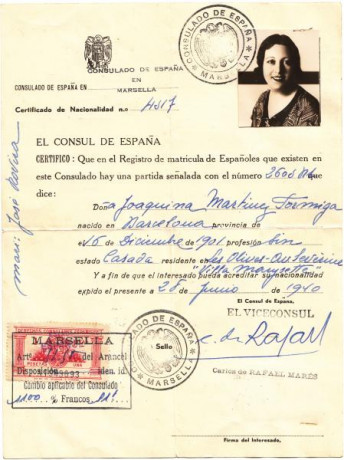 CONSULADO DE ESPAÑA
MARSELLA
CONSULADO DE ESPAÑA
EN
CONSULADO DE ESPAÑA EN
MARSELLA
Certificado de Nacionalidad n.º 4517
EL CONSUL DE ESPAÑA
CERTIFICO: Que en el Registro de matricula de Españoles que existen
en este Consulado hay una partida señalada con el número 3606 que
dice:
Doña Joaquina Martinez Formiga
nacido en Barcelona provincia de
el 16 de Diciembre de 1901 profesión
estado Casada residente en Les Olives
Y a fin de que el interesado pueda acreditar su nacionalidad
expido el presente a 28 de Junio de 1940
El Consul de España,
EL VICECONSUL
C. de Rafael
Carlos de RAFAEL MARÉS
CONSULADO DE ESPAÑA
MARSELLA
Sello
MARSELLA
Art. del Arancel
Disposición iden. id.
Cambio aplicable del Consulado
% Francos
mari: José
Firma del Interesado,